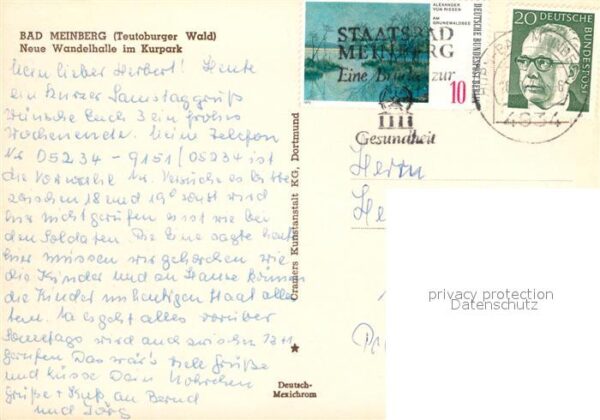 BAD MEINBERG (Teutoburger Wald)
Neue Wandelhalle im Kurpark
Mein lieber Herbert! Heute
ein kurzer Samstaggruß
wünsche Euch 3 ein frohes
Wochenende. Meine Telefon
Nr 05234 - 9151/05234 ist
die Vorwahl Nr. Versuche es bitte
zwischen 18 und 19⁰ sonst wird
hier nicht gerufen es ist wie bei
den Soldaten. Die Eine sagte heute
hier müssen wir gehorchen wie
die Kinder und zu Hause können
die Kinder im heutigen Staat alles
tun. Na es geht alles vorüber
Sonntags wird auch zwischen
gerufen Das wär's viele Grüße
und Küsse Dein
Grüße + Kuß an Bernd
und Jörg
Cramers Kunstanstalt KG, Dortmund
Deutsch-
Mexichrom
ALEXANDER VON RIESEN
AM GRUNEWALDSEE
DEUTSCHE BUNDESPOST BERLIN
10
20
DEUTSCHE BUNDESPOST
STAATSBAD
MEINBERG
Eine Brücke zur
Gesundheit
4934
Herrn
He
privacy protection
Datenschutz